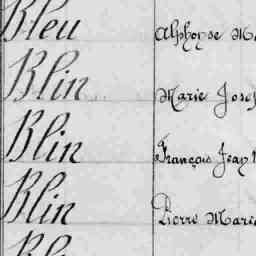 Bleu Alphonse
Blin Marie
Blin François Jean
Blin Pierre Marie